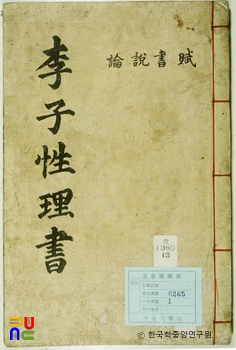 李子性理書
賦書說論
1360
13
6265
1
UNC
© 한국학중앙연구원